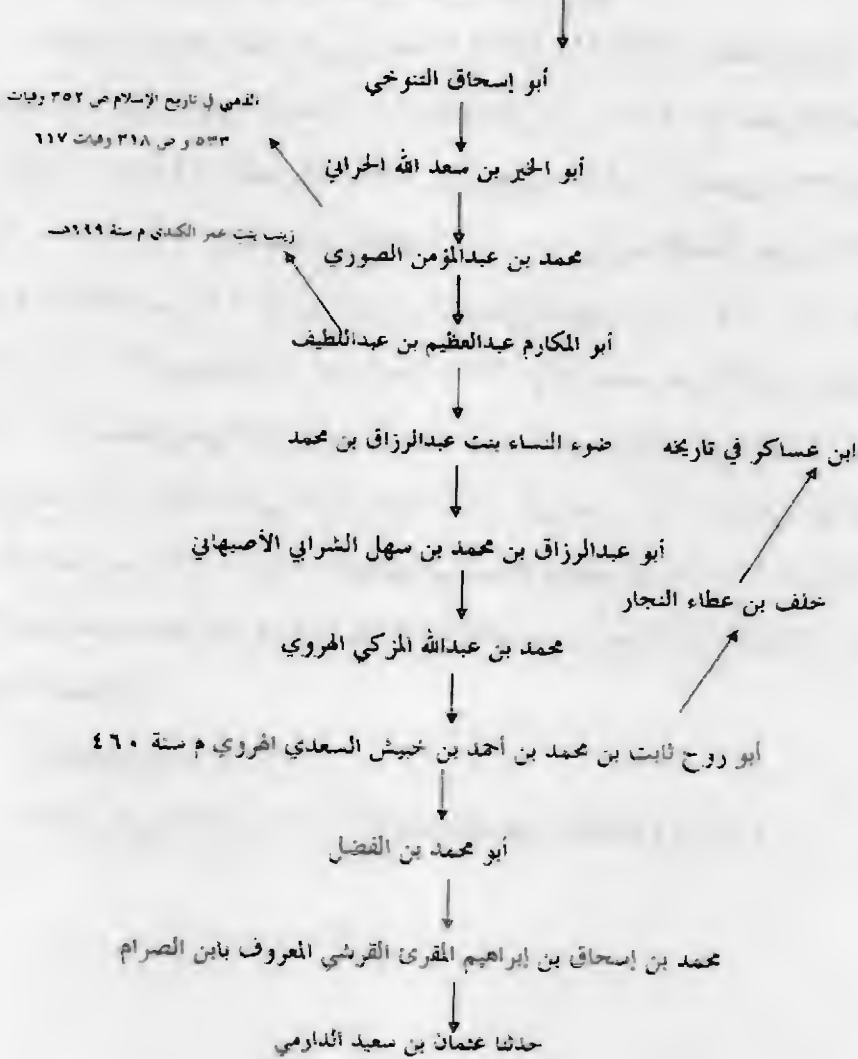 أبو إسحاق التنوخي
الذهبي في تاريخ الإسلام ص ٣٥٢ وفيات
٥٣٣ و ص ٣١٨ وفيات ٦١٧
أبو الخير بن سعد الله الحراني
زينب بنت عمر الكندي م سنة ٦٩٩هـ
محمد بن عبدالمؤمن الصوري
أبو المكارم عبدالعظيم بن عبداللطيف
ضوء النساء بنت عبدالرزاق بن محمد
ابن عساكر في تاريخه
أبو عبدالرزاق بن محمد بن سهل الشرابي الأصبهاني
خلف بن عطاء النجار
محمد بن عبدالله المزكي الهروي
أبو روح ثابت بن محمد بن أحمد بن خبيش السعدي الهروي م سنة ٤٦٠
أبو محمد بن الفضل
محمد بن إسحاق بن إبراهيم المقرئ القرشي المعروف بابن الصرام
حدثنا عثمان بن سعيد الدارمي